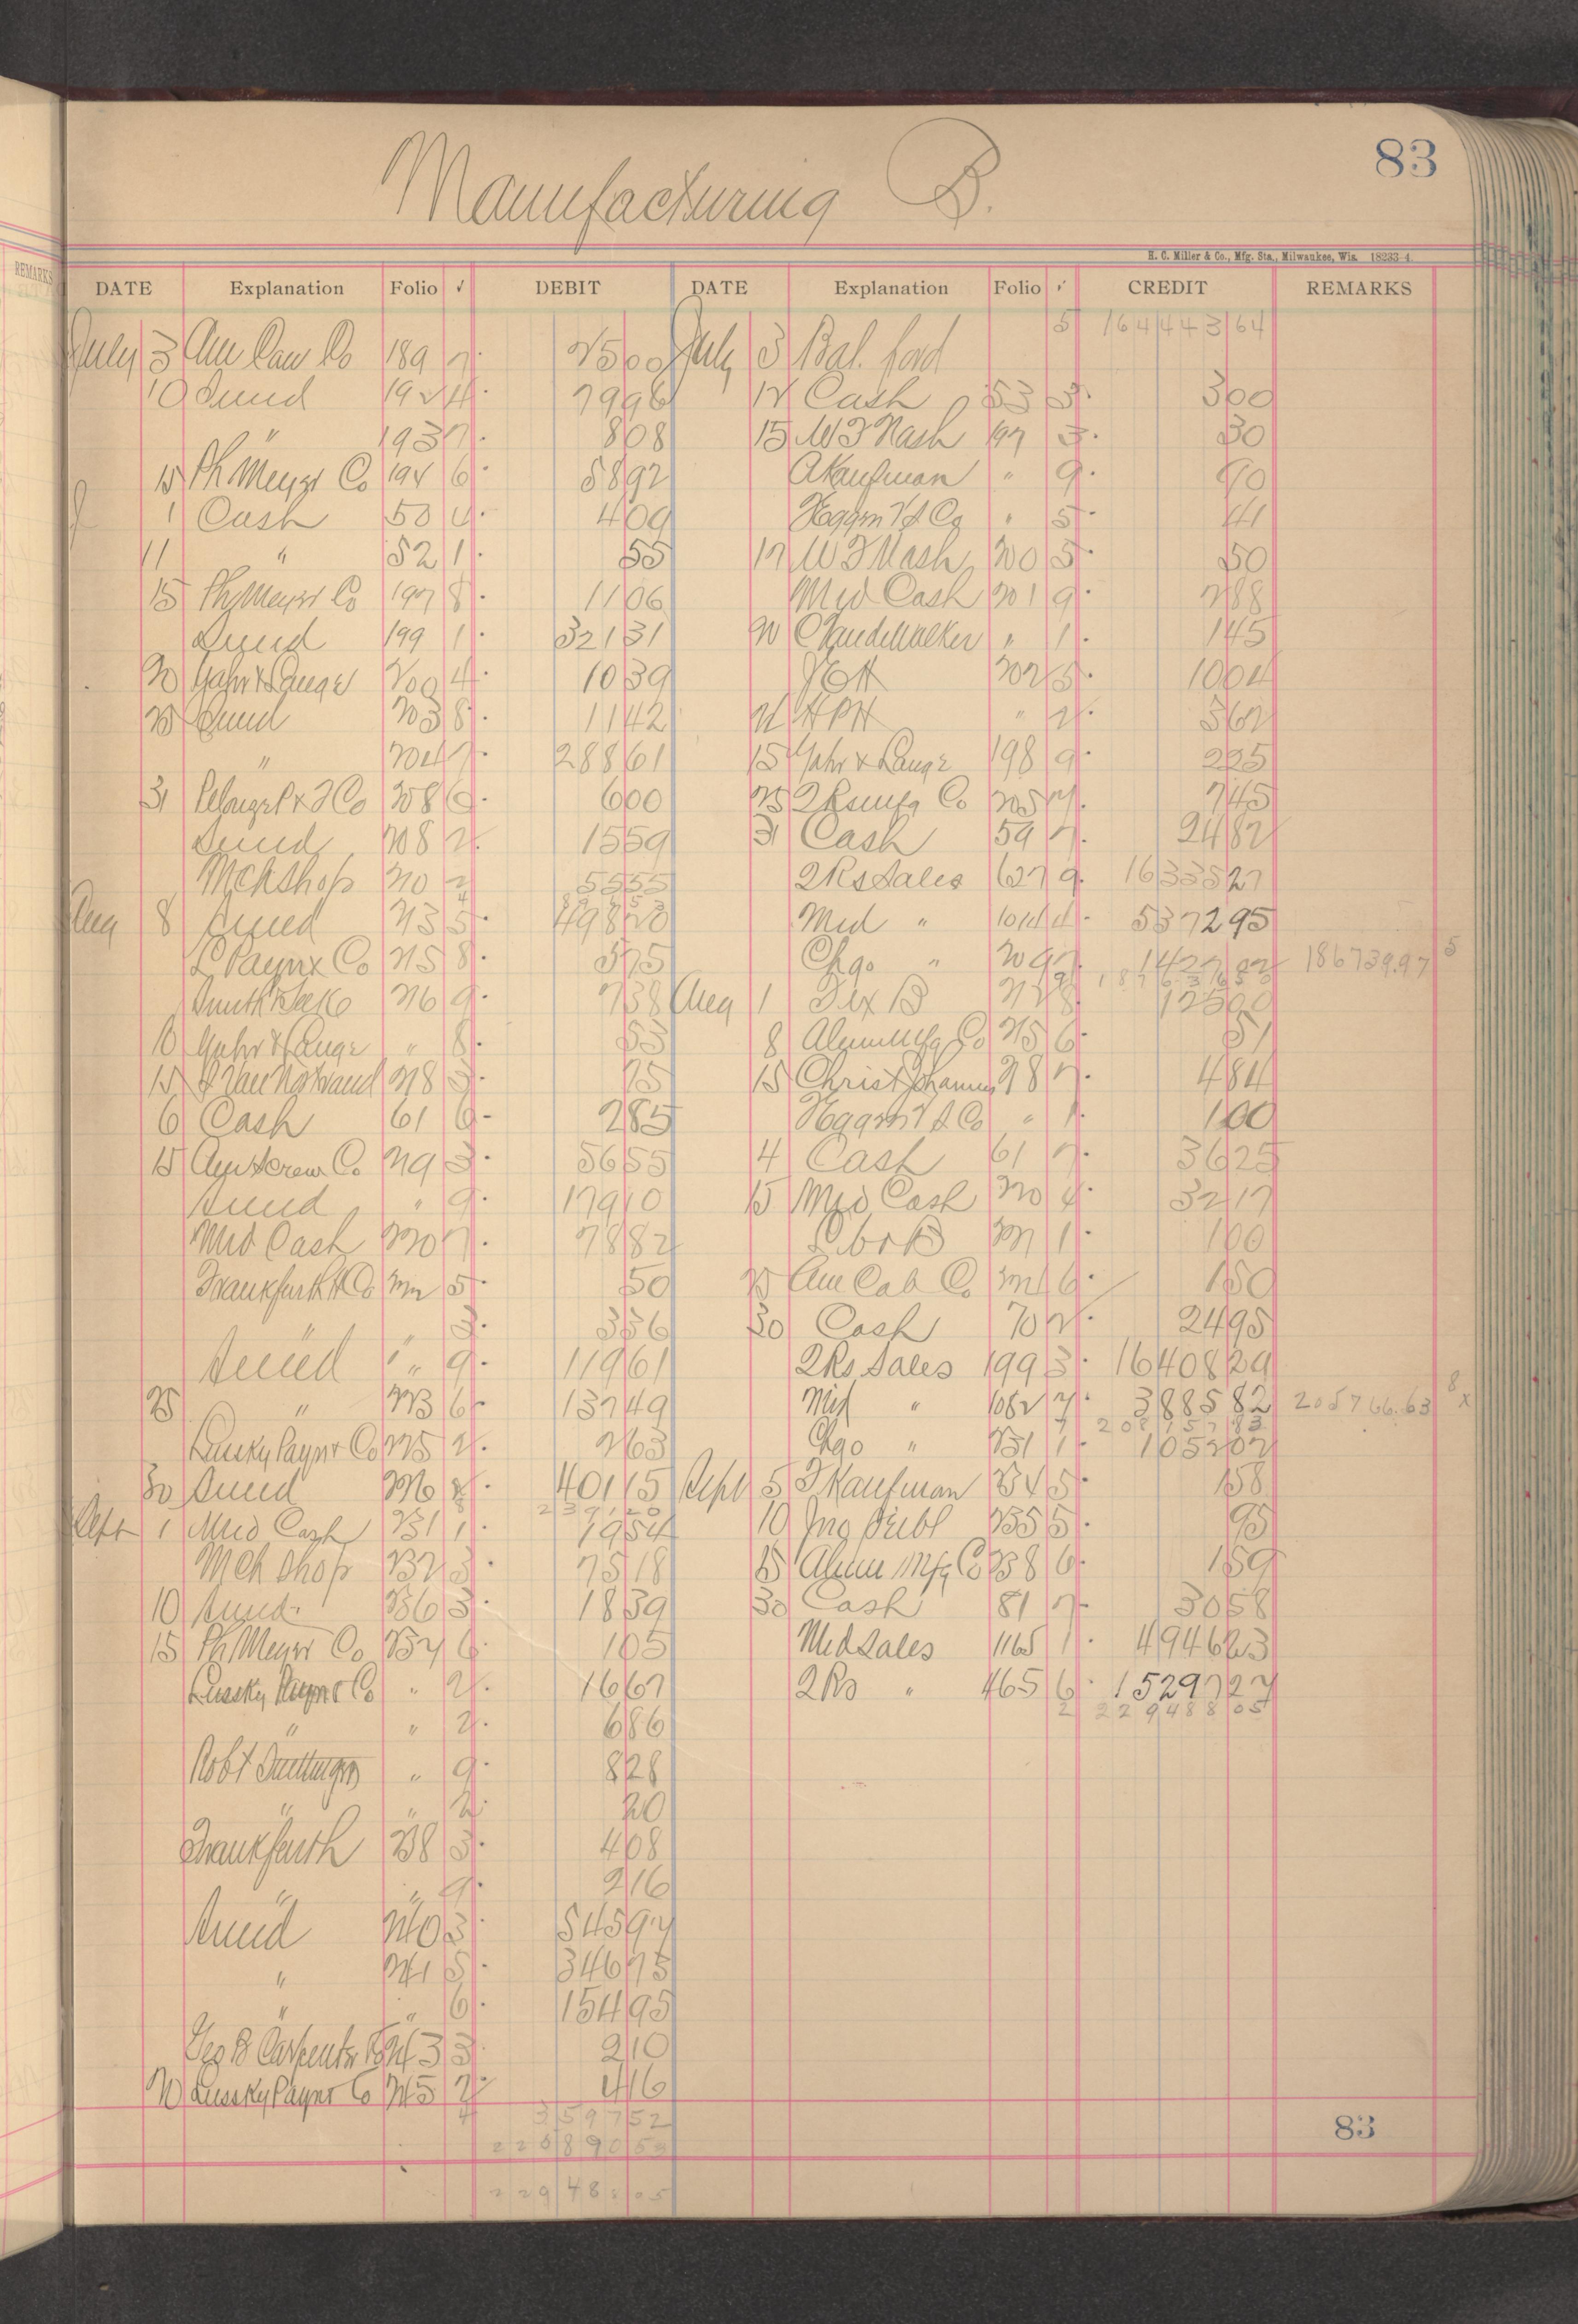 83
Manufacturing B.
H. C. Miller & Co., Mfg. Sta., Milwaukee, Wis. 18233-4.
REMARKS
DATE Explanation Folio ✓ DEBIT DATE Explanation Folio ✓ CREDIT REMARKS
5 164443 64
July 3 Am Can Co 189 7. 2500 July 3 Bal. ford
10 Sund 192 4. 7996 12 Cash 53 3. 300
" 193 7. 808 15 W F Nash 197 3. 30
15 Ph Meyer Co 194 6. 5892 A Kaufman " 9. 90
1 Cash 50 4. 409 " 5. 41
11 " 52 1. 55 17 W F Nash 200 5. 50
15 Ph Meyer Co 197 8. 1106 Med Cash 201 9. 288
Sund 199 1. 32131 20 C Vandewalker " 1. 145
20 Yahr & Lange 200 4. 1039 202 5. 1004
25 Sund 203 8. 1142 21 H P H " 2. 562
" 204 7. 28861 15 Yahr & Lange 198 9. 225
31 208 6. 600 25 2 Rs Mfg Co 205 7. 745
Sund 208 2. 1559 31 Cash 59 7. 2482
Mch Shop 210 2 5555 2 Rs Sales 627 9. 1633527
Aug 8 Sund 213 5. 49820 Med " 1014 4. 537295
L Payne Co 215 8. 575 Chgo " 209 7. 142702 186739.97 5
216 9. 738 Aug 1 Fix B 212 8. 12500
10 Yahr & Lange " 8. 53 8 Alum Mfg Co 215 6. 51
15 J Van Nostrand 218 3. 75 15 218 7. 484
6 Cash 61 6- 285 " 1. 100
15 Am Screw Co 219 3. 5655 4 Cash 61 7. 3625
Sund " 9. 17910 15 Med Cash 220 4. 3217
Med Cash 220 7. 7882 221 1. 100
Frankfurth H Co 222 5. 50 25 Am Cab Co 221 6. 150
" " 3. 336 30 Cash 70 2. 2495
Sund " 9. 11961 2 Rs Sales 1993 . 1640829
25 " 223 6. 13749 Med " 1082 7. 388582 205766.63 8 x
9 208157 83
Lussky Payne Co 225 2. 263 Chgo " 231 1. 105202
30 Sund 226 8. 40115 Sept 5 F Kaufman 234 5. 158
Sept 1 Med Cash 231 1. 1954 10 Jno Deibl 235 5. 95
Mch Shop 232 3. 7518 15 Alum Mfg Co 238 6. 159
10 Sund. 236 3. 1839 30 Cash 81 7- 3058
15 Ph Meyer Co 237 6. 105 Med Sales 1165 1. 494623
Lussky Payne Co " 2. 1667 2 Rs " 465 6. 1529727
" " 2. 686 2 229488 05
Robt " 9. 828
" " 2. 20
Frankfurth 238 3. 408
" " 9. 216
Sund 240 3. 54597
" 241 5. 34675
" " 6. 15495
Geo B Carpenter Co 243 3. 210
20 Lussky Payne Co 245 2. 416
4 359752
225890 53
229488 05
83